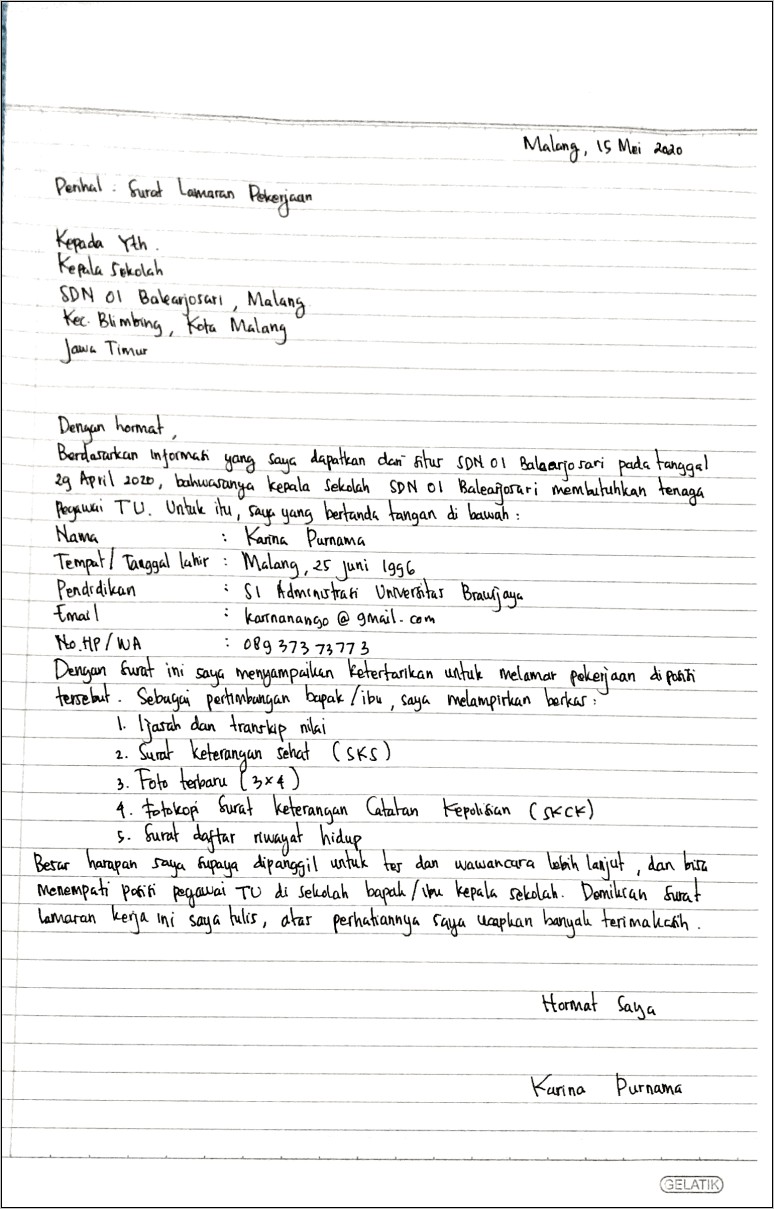 Malang, 15 Mei 2020
Perihal : Surat Lamaran Pekerjaan
Kepada Yth.
Kepala Sekolah
SDN 01 Balearjosari, Malang
Kec. Blimbing, Kota Malang
Jawa Timur
Dengan hormat,
Berdasarkan Informasi yang saya dapatkan dari situs SDN 01 Balearjosari pada tanggal
29 April 2020, bahwasanya kepala sekolah SDN 01 Balearjosari membutuhkan tenaga
pegawai TU. Untuk itu, saya yang bertanda tangan di bawah :
Nama : Karina Purnama
Tempat/Tanggal lahir : Malang, 25 juni 1996
Pendidikan : S1 Administrasi Universitas Brawijaya
Email : karinanango@gmail.com
No.HP/WA : 089 373 73 77 3
Dengan surat ini saya menyampaikan ketertarikan untuk melamar pekerjaan di posisi
tersebut. Sebagai pertimbangan bapak/ibu, saya melampirkan berkas :
1. Ijasah dan transkip nilai
2. Surat keterangan sehat (SKS)
3. Foto terbaru (3x4)
4. Fotokopi Surat keterangan Catatan Kepolisian (SKCK)
5. Surat daftar riwayat hidup
Besar harapan saya supaya dipanggil untuk tes dan wawancara lebih lanjut, dan bisa
menempati posisi pegawai TU di sekolah bapak/ibu kepala sekolah. Demikian surat
lamaran kerja ini saya tulis, atas perhatiannya saya ucapkan banyak terimakasih.
Hormat Saya
Karina Purnama
GELATIK